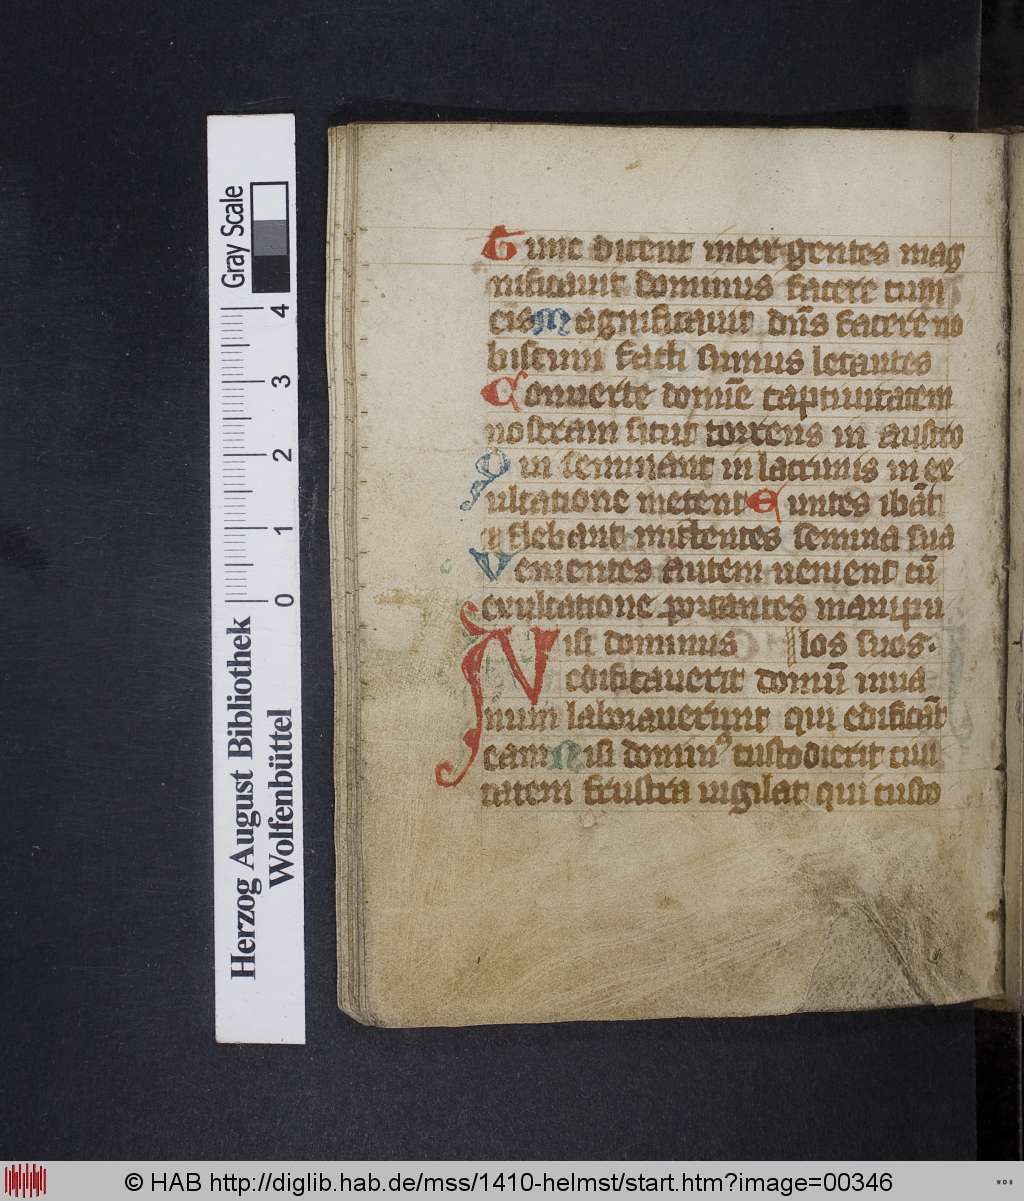 Tunc dicent inter gentes mag
nificavit dominus facere cum
eis Magnificavit dn̄s facere no
biscum facti sumus letantes
Converte domīe captivitatem
nostram sicut torrens in austro
Qui seminant in lacrimis in ex
ultatione metent Euntes ibāt
et flebant mittentes semina sua
Venientes autem venient cū
exultatione portantes manipu
Nisi dominus los suos.
edificaverit domū inva
num laboraverunt qui edificāt
eam Nisi dominꝰ custodierit civi
tatem frustra vigilat qui custo
Gray Scale
4
3
2
1
0
Herzog August Bibliothek
Wolfenbüttel
© HAB http://diglib.hab.de/mss/1410-helmst/start.htm?image=00346